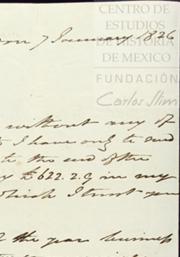 CENTRO DE
ESTUDIOS
DE HISTORIA
DE MEXICO
FUNDACIÓN
Carlos Slim
7 January 1826
without any of
I have only to
to the end of the
£622.2.9 in my
which I trust you
the year business